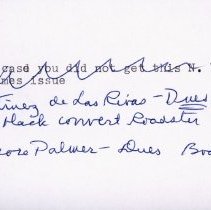 case you did not get this N.
mes issue
tinez de Las Rivas - Dues
black convert Roadster
Palmer - Dues Boo